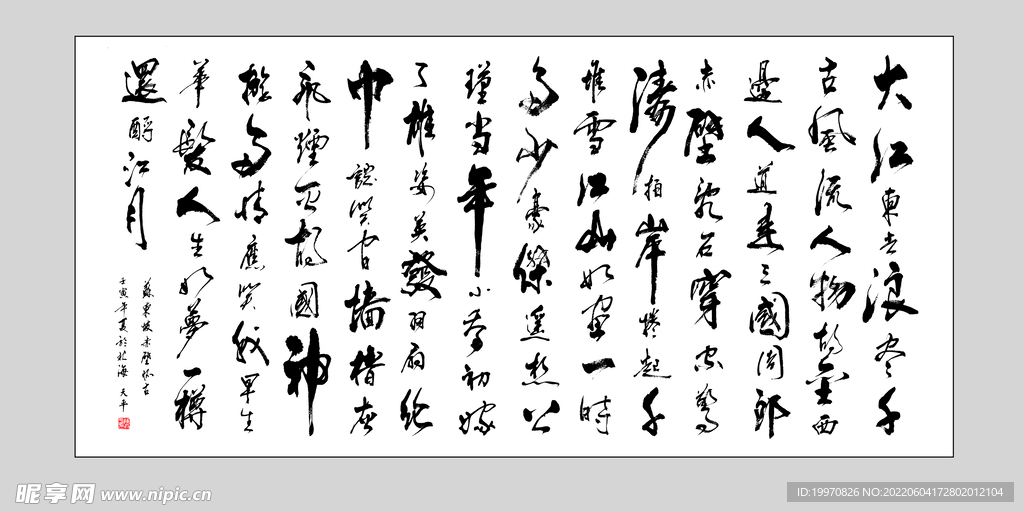 大江東去浪尽千
古風流人物故壘西
邊人道是三國周郎
赤壁乱石穿空驚
濤拍岸捲起千
堆雪江山如畫一時
多少豪傑遥想公
瑾当年小喬初嫁
了雄姿英發羽扇纶
巾談笑間墙櫓灰
飛煙滅故國神
遊多情應笑我早生
華髮人生如夢一樽
還酹江月
蘇東坡赤壁怀古
壬寅年夏於北海 天平
昵享网 www.nipic.cn
ID:19970826 NO:20220604172802012104